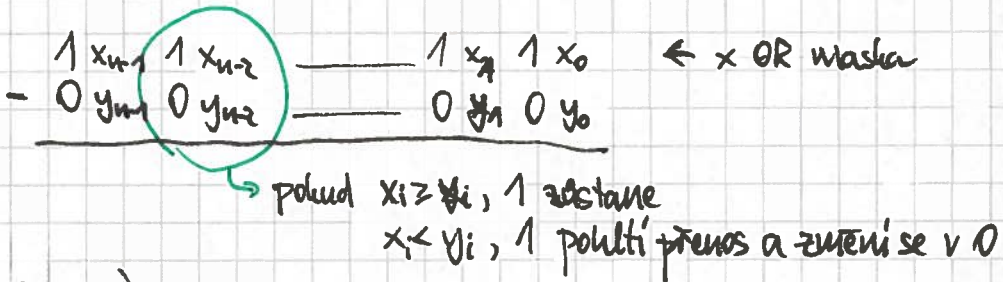 1 xₙ₋₁ 1 xₙ₋₂ ——— 1 x₁ 1 x₀ ← x OR maska
- 0 yₙ₋₁ 0 yₙ₋₂ ——— 0 y₁ 0 y₀
→ pokud xᵢ ≥ yᵢ, 1 zůstane
xᵢ < yᵢ, 1 pohltí přenos a změní se v 0